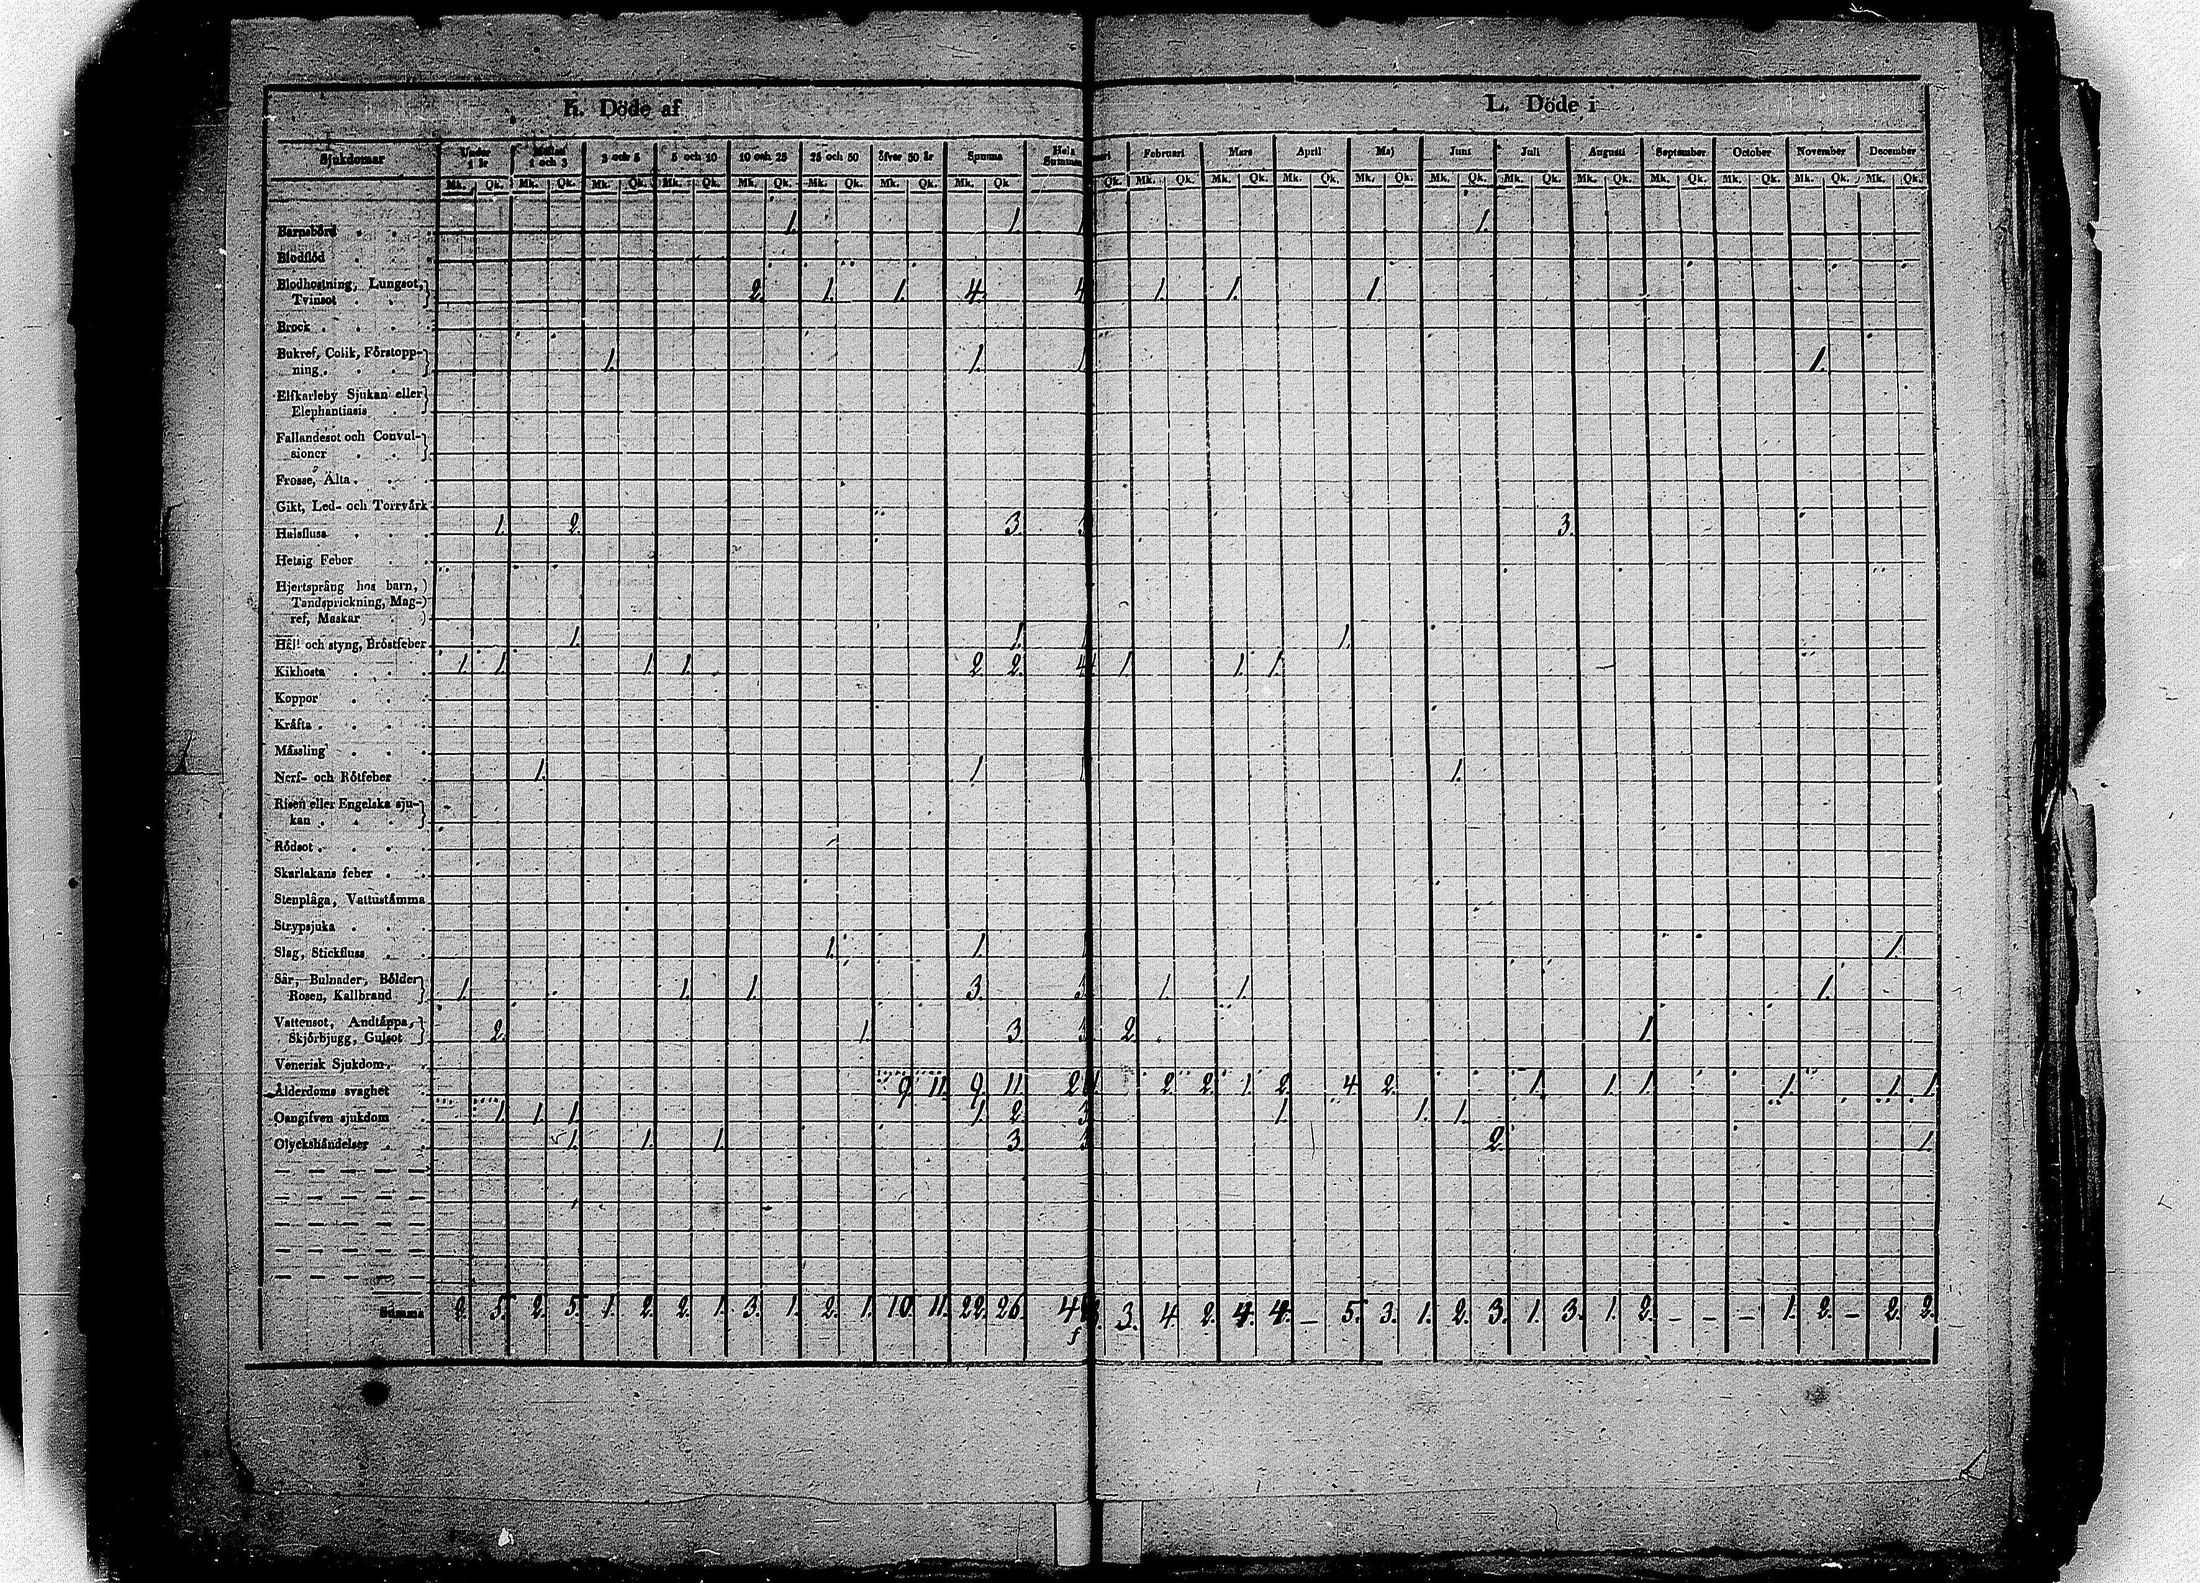 K. Döde af
L. Döde i
Sjukdomar Under 1 år Mellan 1 och 3 3 och 5 5 och 10 10 och 25 25 och 50 öfver 50 år Summa Hela Summan Februari Mars April Maj Juni Juli Augusti September October November December
Mk. Qk. Mk. Qk. Mk. Qk. Mk. Qk. Mk. Qk. Mk. Qk. Mk. Qk. Mk. Qk. Qk. Mk. Qk. Mk. Qk. Mk. Qk. Mk. Qk. Mk. Qk. Mk. Qk. Mk. Qk. Mk. Qk. Mk. Qk. Mk. Qk. Mk. Qk.
Barnsbörd . . . 1. 1. 1 1.
Blodflöd . . .
Blodhostning, Lungsot,
Tvinsot . . 2. 1. 1. 4. 4 1. 1. 1.
Brock . . . .
Bukref, Colik, Förstopp-
ning . . . 1. 1. 1 1.
Elfkarleby Sjukan eller
Elephantiasis .
Fallandesot och Convul-
sioner . .
Frosse, Älta . . .
Gikt, Led- och Torrvärk
Halsfluss . . . 1. 2. 3. 3 3.
Hetsig Feber . .
Hjertsprång hos barn,
Tandsprickning, Mag-
ref, Maskar .
Håll och styng, Bröstfeber 1. 1. 1 1.
Kikhosta . . . 1. 1. 1. 1. 2. 2. 4 1. 1. 1.
Koppor . . .
Kräfta . . . .
Mässling . . .
Nerf- och Rötfeber . 1. 1. 1 1.
Risen eller Engelska sju-
kan . . .
Rödsot . . . .
Skarlakans feber . .
Stenplåga, Vattustämma
Strypsjuka . . .
Slag, Stickfluss . . 1. 1. 1 1.
Sår, Bulnader, Bölder
Rosen, Kallbrand 1. 1. 1. 3. 3 1. 1. 1.
Vattensot, Andtäppa,
Skjörbjugg, Gulsot 2. 1. 3. 3 2. 1.
Venerisk Sjukdom .
Ålderdoms svaghet . 9. 11. 9. 11. 2 2. 2. 1. 2. 4. 2. 1. 1. 1. 1. 1. 1.
Oangifven sjukdom . 1. 1. 1. 1. 2. 3 1. 1. 1.
Olyckshändelser . . 1. 1. 1. 3. 3 2. 1.
Summa 2. 5. 2. 5. 1. 2. 2. 1. 3. 1. 2. 1. 10. 11. 22. 26. 4 3. 4. 2. 4. 4. — 5. 3. 1. 2. 3. 1. 3. 1. 2. — — — 1. 2. — 2. 2.